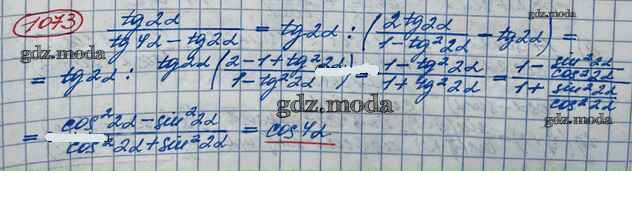 1073 tg2α / (tg4α - tg2α) = tg2α : (2tg2α / (1 - tg²2α) - tg2α) =
gdz.moda
gdz.moda
= tg2α : tg2α (2 - 1 + tg²2α / 1 - tg²2α) = (1 - tg²2α) / (1 + tg²2α) = (1 - sin²2α / cos²2α) / (1 + sin²2α / cos²2α)
gdz.moda
gdz.moda
= (cos²2α - sin²2α) / (cos²2α + sin²2α) = cos4α
gdz.moda